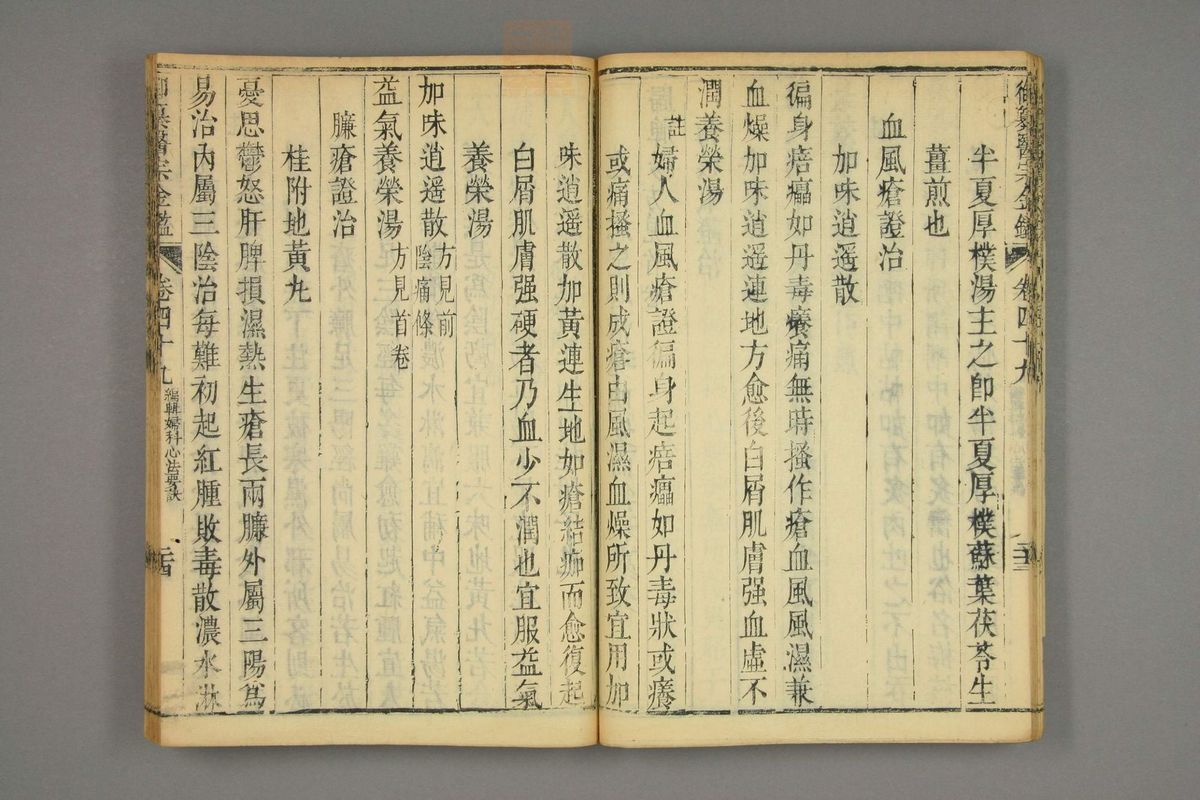 御纂醫宗金鑑 卷四十九
半夏厚樸湯主之卽半夏厚樸蘇葉茯苓生
薑煎也
血風瘡證治
加味逍遥散
徧身㾦㿔如丹毒癢痛無時搔作瘡血風風濕兼
血燥加味逍遥連地方愈後白屑肌膚强血虛不
潤養榮湯
註婦人血風瘡證徧身起㾦㿔如丹毒狀或癢
或痛搔之則成瘡由風濕血燥所致宜用加
味逍遥散加黃連生地如瘡結痂而愈復起
白屑肌膚强硬者乃血少不潤也宜服益氣
養榮湯
加味逍遥散方見前陰痛條
益氣養榮湯方見首卷
臁瘡證治
桂附地黃丸
憂思鬱怒肝脾損濕熱生瘡長兩臁外屬三陽爲
易治內屬三陰治每難初起紅腫敗毒散濃水淋
御纂醫宗金鑑 卷四十九 編輯婦科心法要訣 二十四